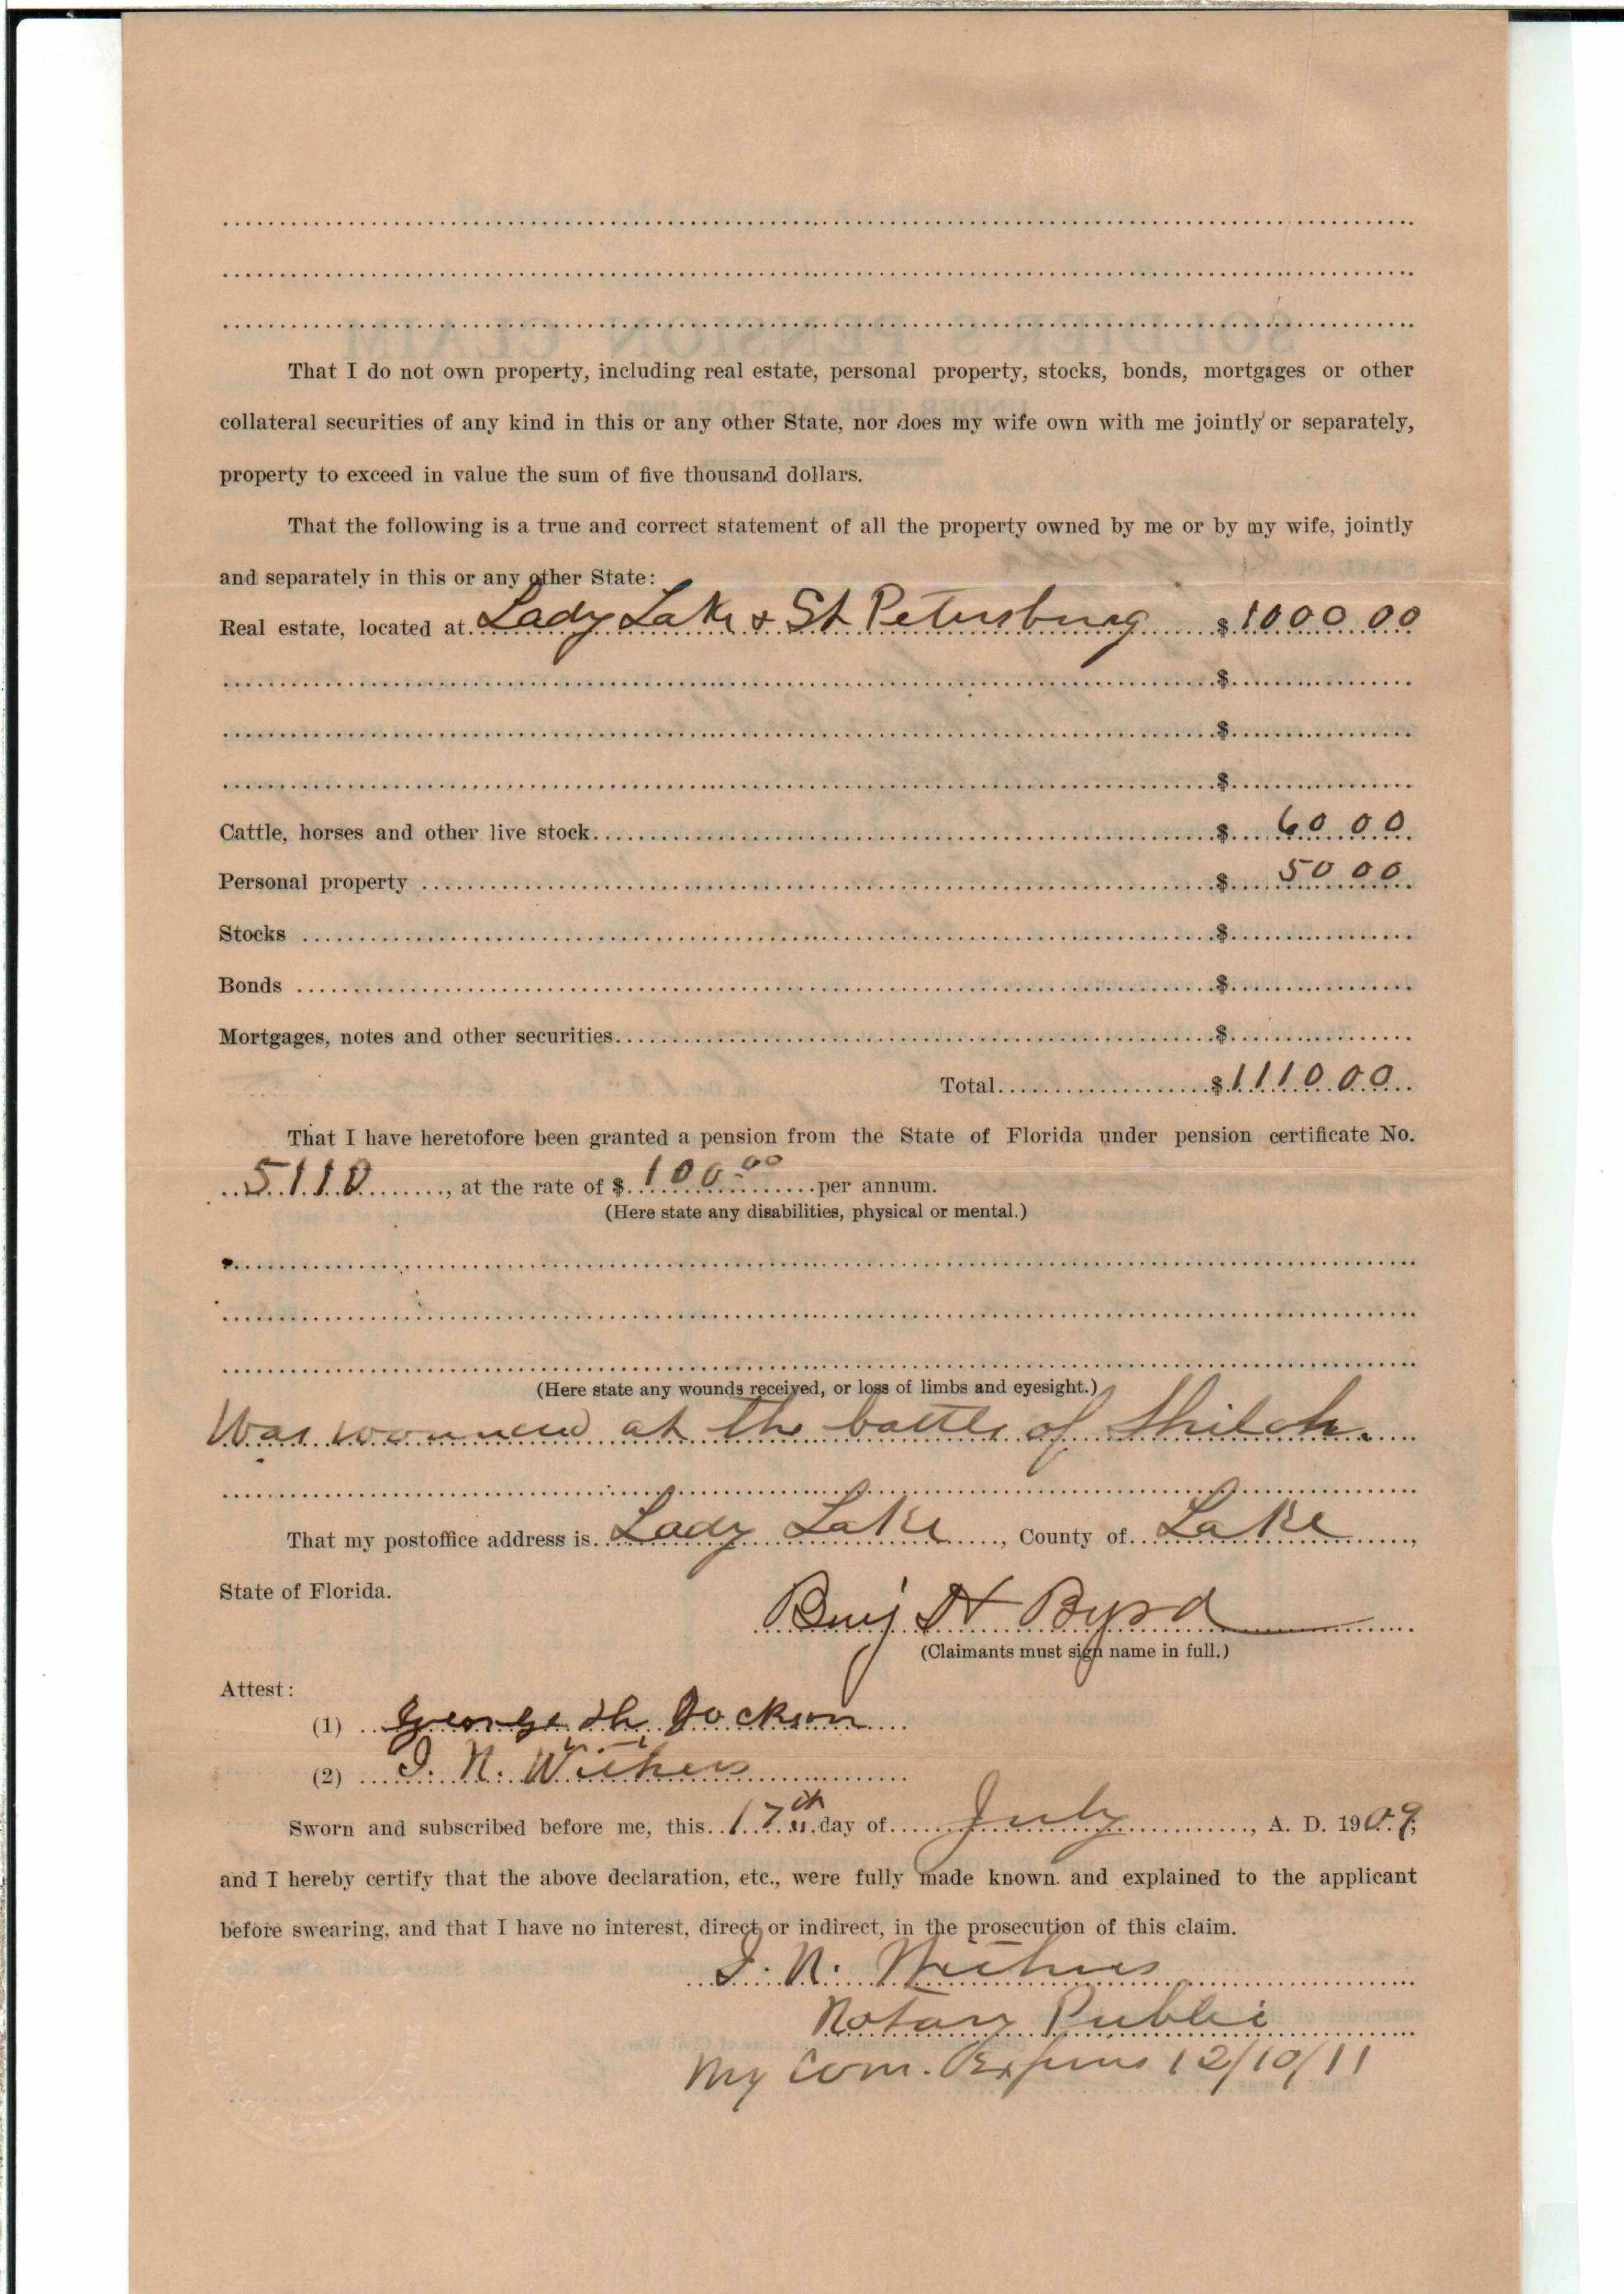 That I do not own property, including real estate, personal property, stocks, bonds, mortgages or other
collateral securities of any kind in this or any other State, nor does my wife own with me jointly or separately,
property to exceed in value the sum of five thousand dollars.
That the following is a true and correct statement of all the property owned by me or by my wife, jointly
and separately in this or any other State:
Real estate, located at Lady Lake & St Petersburg $ 1000 00
$
$
$
Cattle, horses and other live stock $ 60 00
Personal property $ 50 00
Stocks $
Bonds $
Mortgages, notes and other securities $
Total $ 1110 00
That I have heretofore been granted a pension from the State of Florida under pension certificate No.
5110, at the rate of $ 100.00 per annum.
(Here state any disabilities, physical or mental.)
(Here state any wounds received, or loss of limbs and eyesight.)
Was at the battle of Shiloh.
That my postoffice address is Lady Lake, County of Lake,
State of Florida.
Benj H Byrd
(Claimants must sign name in full.)
Attest:
(1) George
(2) I. N. Withers
Sworn and subscribed before me, this 17th day of July, A. D. 1909,
and I hereby certify that the above declaration, etc., were fully made known. and explained to the applicant
before swearing, and that I have no interest, direct or indirect, in the prosecution of this claim.
I. N. Withers
Notary Public
My Com. Expires 12/10/11